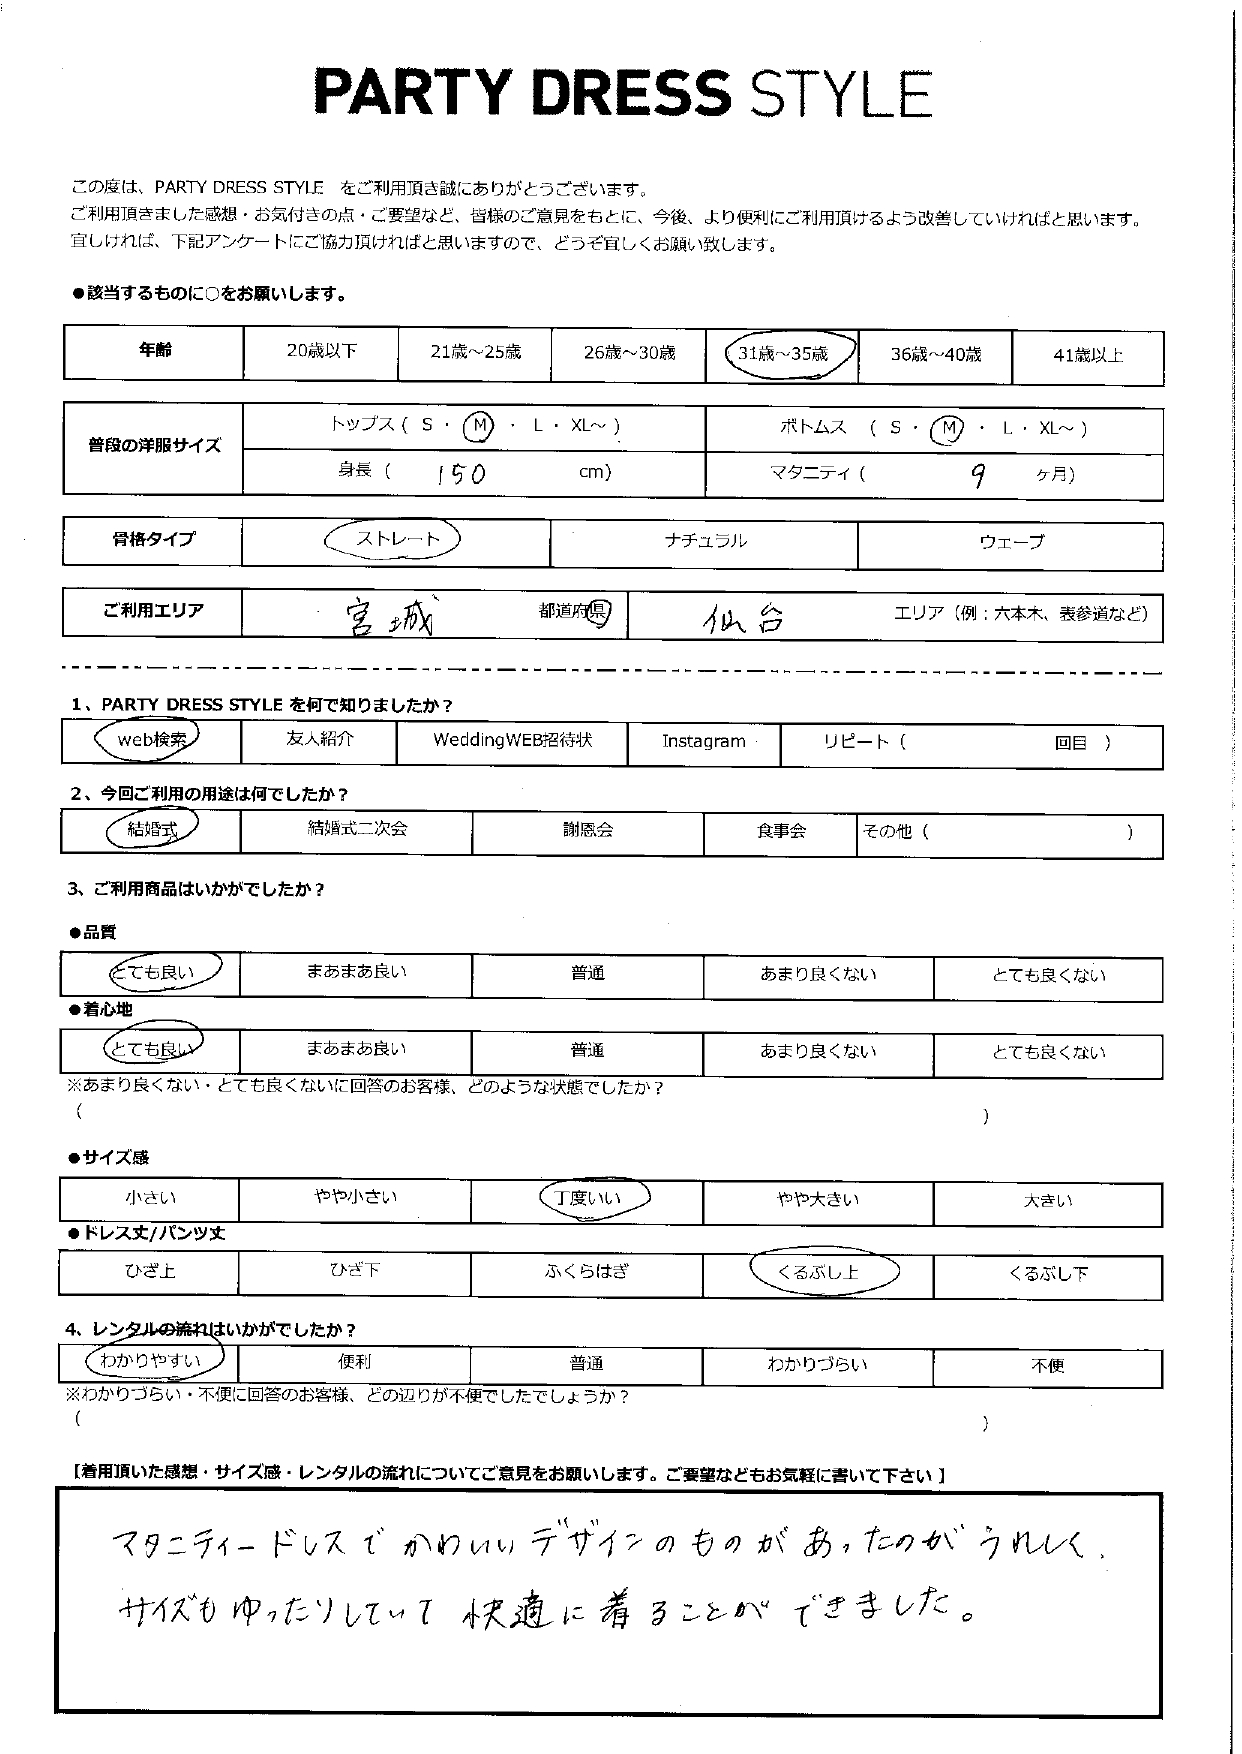 PARTY DRESS STYLE
この度は、PARTY DRESS STYLE をご利用頂き誠にありがとうございます。
ご利用頂きました感想・お気付きの点・ご要望など、皆様のご意見をもとに、今後、より便利にご利用頂けるよう改善していければと思います。
宜しければ、下記アンケートにご協力頂ければと思いますので、どうぞ宜しくお願い致します。
●該当するものに○をお願いします。
年齢 20歳以下 21歳～25歳 26歳～30歳 31歳～35歳 36歳～40歳 41歳以上
普段の洋服サイズ トップス ( S ・ M ・ L ・ XL～ ) ボトムス ( S ・ M ・ L ・ XL～ )
身長 ( 150 cm) マタニティ ( 9 ヶ月)
骨格タイプ ストレート ナチュラル ウェーブ
ご利用エリア 宮城 都道府県 仙台 エリア (例：六本木、表参道など)
1、PARTY DRESS STYLE を何で知りましたか？
web検索 友人紹介 WeddingWEB招待状 Instagram リピート ( 回目 )
2、今回ご利用の用途は何でしたか？
結婚式 結婚式二次会 謝恩会 食事会 その他 ( )
3、ご利用商品はいかがでしたか？
●品質
とても良い まあまあ良い 普通 あまり良くない とても良くない
●着心地
とても良い まあまあ良い 普通 あまり良くない とても良くない
※あまり良くない・とても良くないに回答のお客様、どのような状態でしたか？
( )
●サイズ感
小さい やや小さい 丁度いい やや大きい 大きい
●ドレス丈/パンツ丈
ひざ上 ひざ下 ふくらはぎ くるぶし上 くるぶし下
4、レンタルの流れはいかがでしたか？
わかりやすい 便利 普通 わかりづらい 不便
※わかりづらい・不便に回答のお客様、どの辺りが不便でしたでしょうか？
( )
[着用頂いた感想・サイズ感・レンタルの流れについてご意見をお願いします。ご要望などもお気軽に書いて下さい ]
マタニティードレスでかわいいデザインのものがあったのがうれしく、
サイズもゆったりしていて快適に着ることができました。